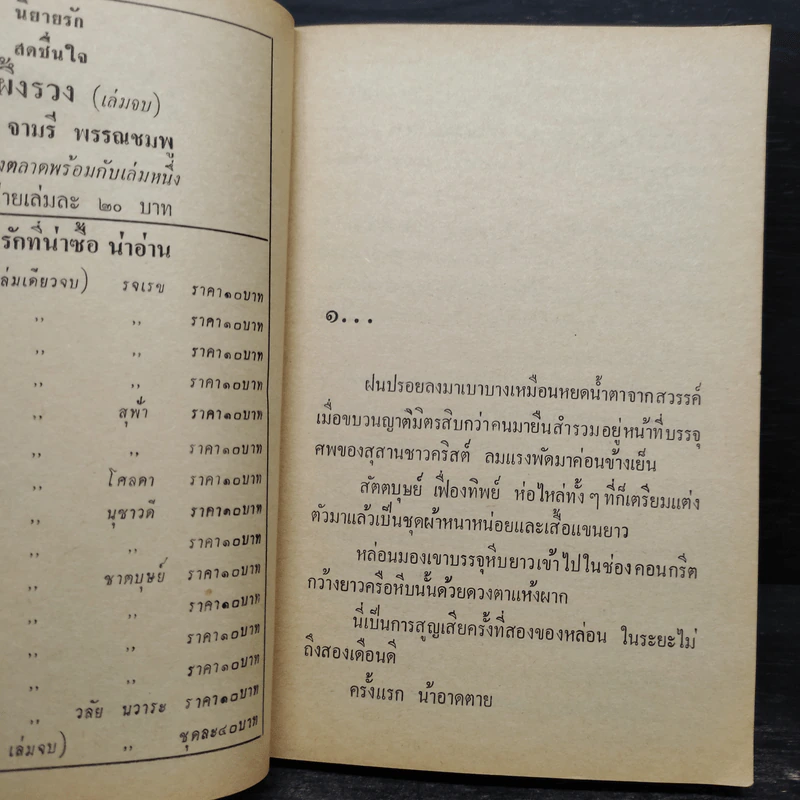 นิยายรัก
สดชื่นใจ
ผึ้งรวง (เล่มจบ)
จามรี พรรณชมพู
งตลาดพร้อมกับเล่มหนึ่ง
ายเล่มละ ๒๐ บาท
รักที่น่าซื้อ น่าอ่าน
ล่มเดียวจบ) รจเรข ราคา๑๐บาท
,, ,, ราคา๑๐บาท
,, ,, ราคา๑๐บาท
,, ,, ราคา๑๐บาท
,, สุฟ้า ราคา๑๐บาท
,, ,, ราคา๑๐บาท
,, โศลดา ราคา๑๐บาท
,, นุชาวดี ราคา๑๐บาท
,, ,, ราคา๑๐บาท
,, ชาตบุษย์ ราคา๑๐บาท
,, ,, ราคา๑๐บาท
,, ,, ราคา๑๐บาท
,, ,, ราคา๑๐บาท
,, วลัย นวาระ ราคา๑๐บาท
เล่มจบ) ,, ชุดละ๔๐บาท
๑...
ฝนปรอยลงมาเบาบางเหมือนหยดน้ำตาจากสวรรค์
เมื่อขบวนญาติมิตรสิบกว่าคนมายืนสำรวมอยู่หน้าที่บรรจุ
ศพของสุสานชาวคริสต์ ลมแรงพัดมาค่อนข้างเย็น
สัตตบุษย์ เฟื่องทิพย์ ห่อไหล่ทั้ง ๆ ที่ก็เตรียมแต่ง
ตัวมาแล้วเป็นชุดผ้าหนาหน่อยและเสื้อแขนยาว
หล่อนมองเขาบรรจุหีบยาวเข้าไปในช่องคอนกรีต
กว้างยาวครือหีบนั้นด้วยดวงตาแห้งผาก
นี่เป็นการสูญเสียครั้งที่สองของหล่อน ในระยะไม่
ถึงสองเดือนดี
ครั้งแรก น้าอาดตาย